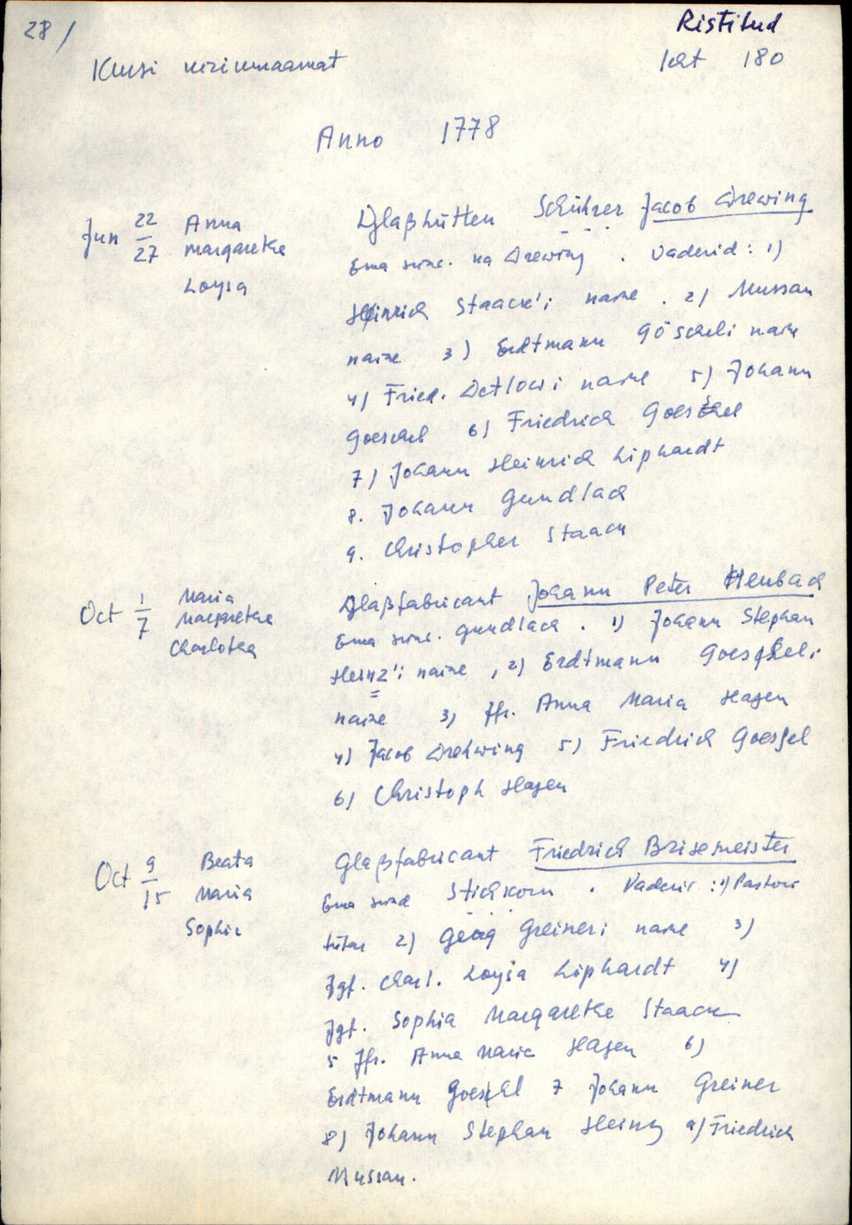 28/
Ristitud
Kursi kirikuraamat
lht 180
Anno 1778
Jun 22/27 Anna Margaretha Loysa
Glaßhütten Schührer Jacob Drewing
Ema sünd. ka Drewing. Vaderid: 1)
Heinrich Staack'i naine. 2) Mussau
naine 3) Erdtmann Göscheli naine
4) Fried. Detlowi naine 5) Johann
Goeschel 6) Friedrich Goeschel
7) Johann Heinrich Liphardt
8. Johann Gundlach
9. Christopher Staack
Oct 1/7 Maria Margaretha Charlotha
Glaßfabricant Johann Peter Heubach
Ema sünd. Gundlach. 1) Johann Stephan
Heinz'i naine, 2) Erdtmann Goescheli
naine 3) Jfr. Anna Maria Hagen
4) Jacob Drehwing 5) Friedrich Goeschel
6) Christoph Hagen
Oct 9/15 Beata Maria Sophie
Glaßfabricant Friedrich Brisemeister
Ema sünd Stichkorn. Vaderid: 1) Pastori
tütar 2) Georg Greineri naine 3)
Jgf. Charl. Loysa Liphardt 4)
Jgf. Sophia Margarethe Staack
5 Jfr. Anna Maria Hagen 6)
Erdtmann Goeschel 7 Johann Greiner
8) Johann Stephan Heinz 9) Friedrich
Mussau.